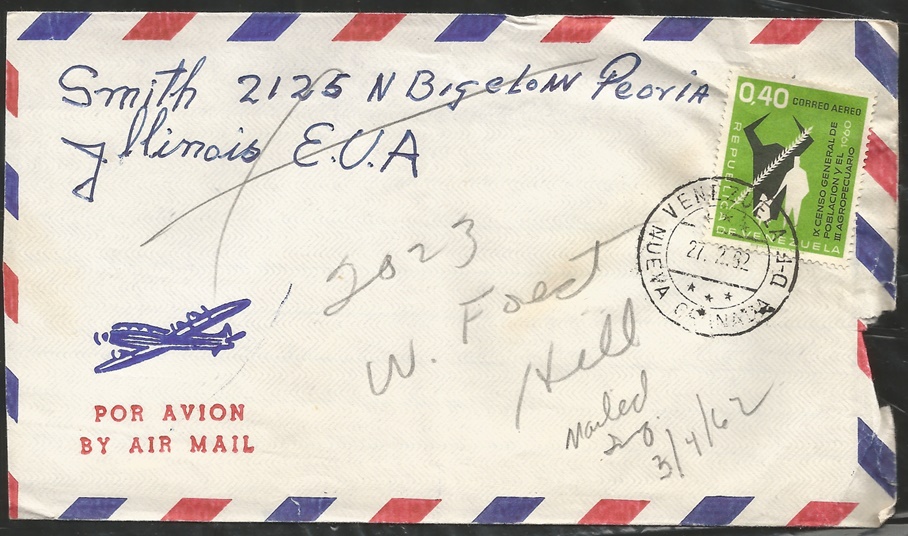 Smith 2125 N Bigelow Peoria
Illinois E.U.A
0,40 CORREO AEREO
REPUBLICA
DE VENEZUELA
IX CENSO GENERAL DE
POBLACION Y EL 1960
III AGROPECUARIO
VENEZUELA D-F
27. 2.62
NUEVA
2023
W. Forest
Hill
Mailed
3/4/62
POR AVION
BY AIR MAIL